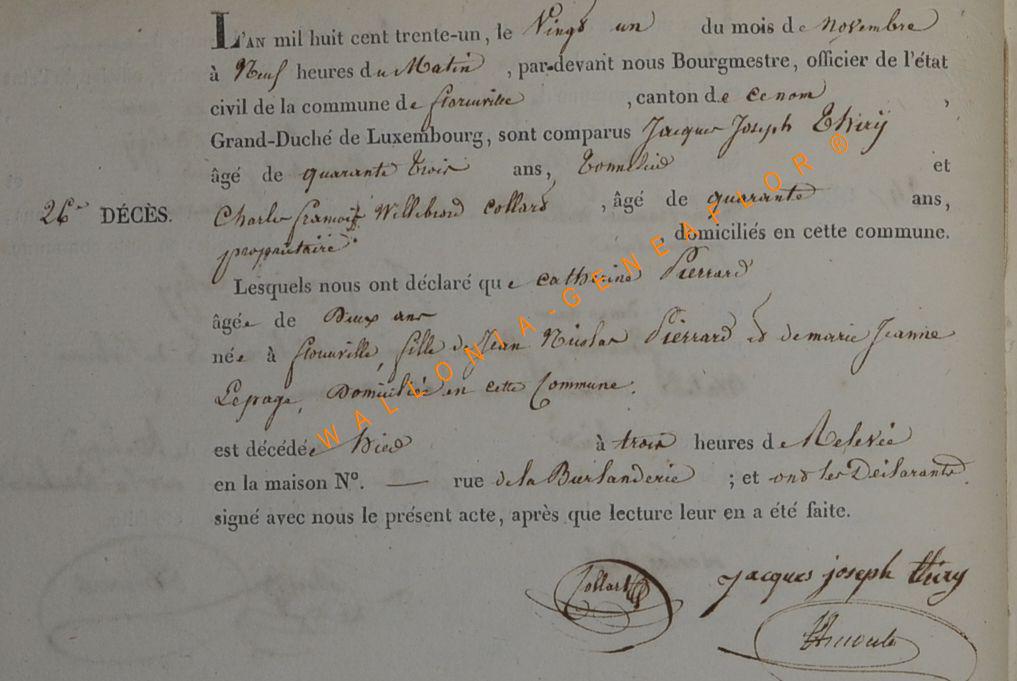 L'AN mil huit cent trente-un, le Vingt un du mois de novembre
à Neuf heures du Matin, par-devant nous Bourgmestre, officier de l'état
civil de la commune de florenville, canton de ce nom,
Grand-Duché de Luxembourg, sont comparus Jacques Joseph Thiry
âgé de quarante trois ans, Tonnelier et
26e DÉCÈS. Charles françois Willebrord Collard, âgé de quarante ans,
propriétaire, domiciliés en cette commune.
Lesquels nous ont déclaré que catherine Pierrard
âgée de Deux ans
née à florenville, fille de Jean Nicolas Pierrard et de marie Jeanne
Lepage, Domiciliés en cette Commune.
est décédée hier à trois heures de Relevée
en la maison N°. — rue de la ; et ont les Déclarants
signé avec nous le présent acte, après que lecture leur en a été faite.
Collard Jacques joseph thiry
WALLONIA-GENEAFLOR ®